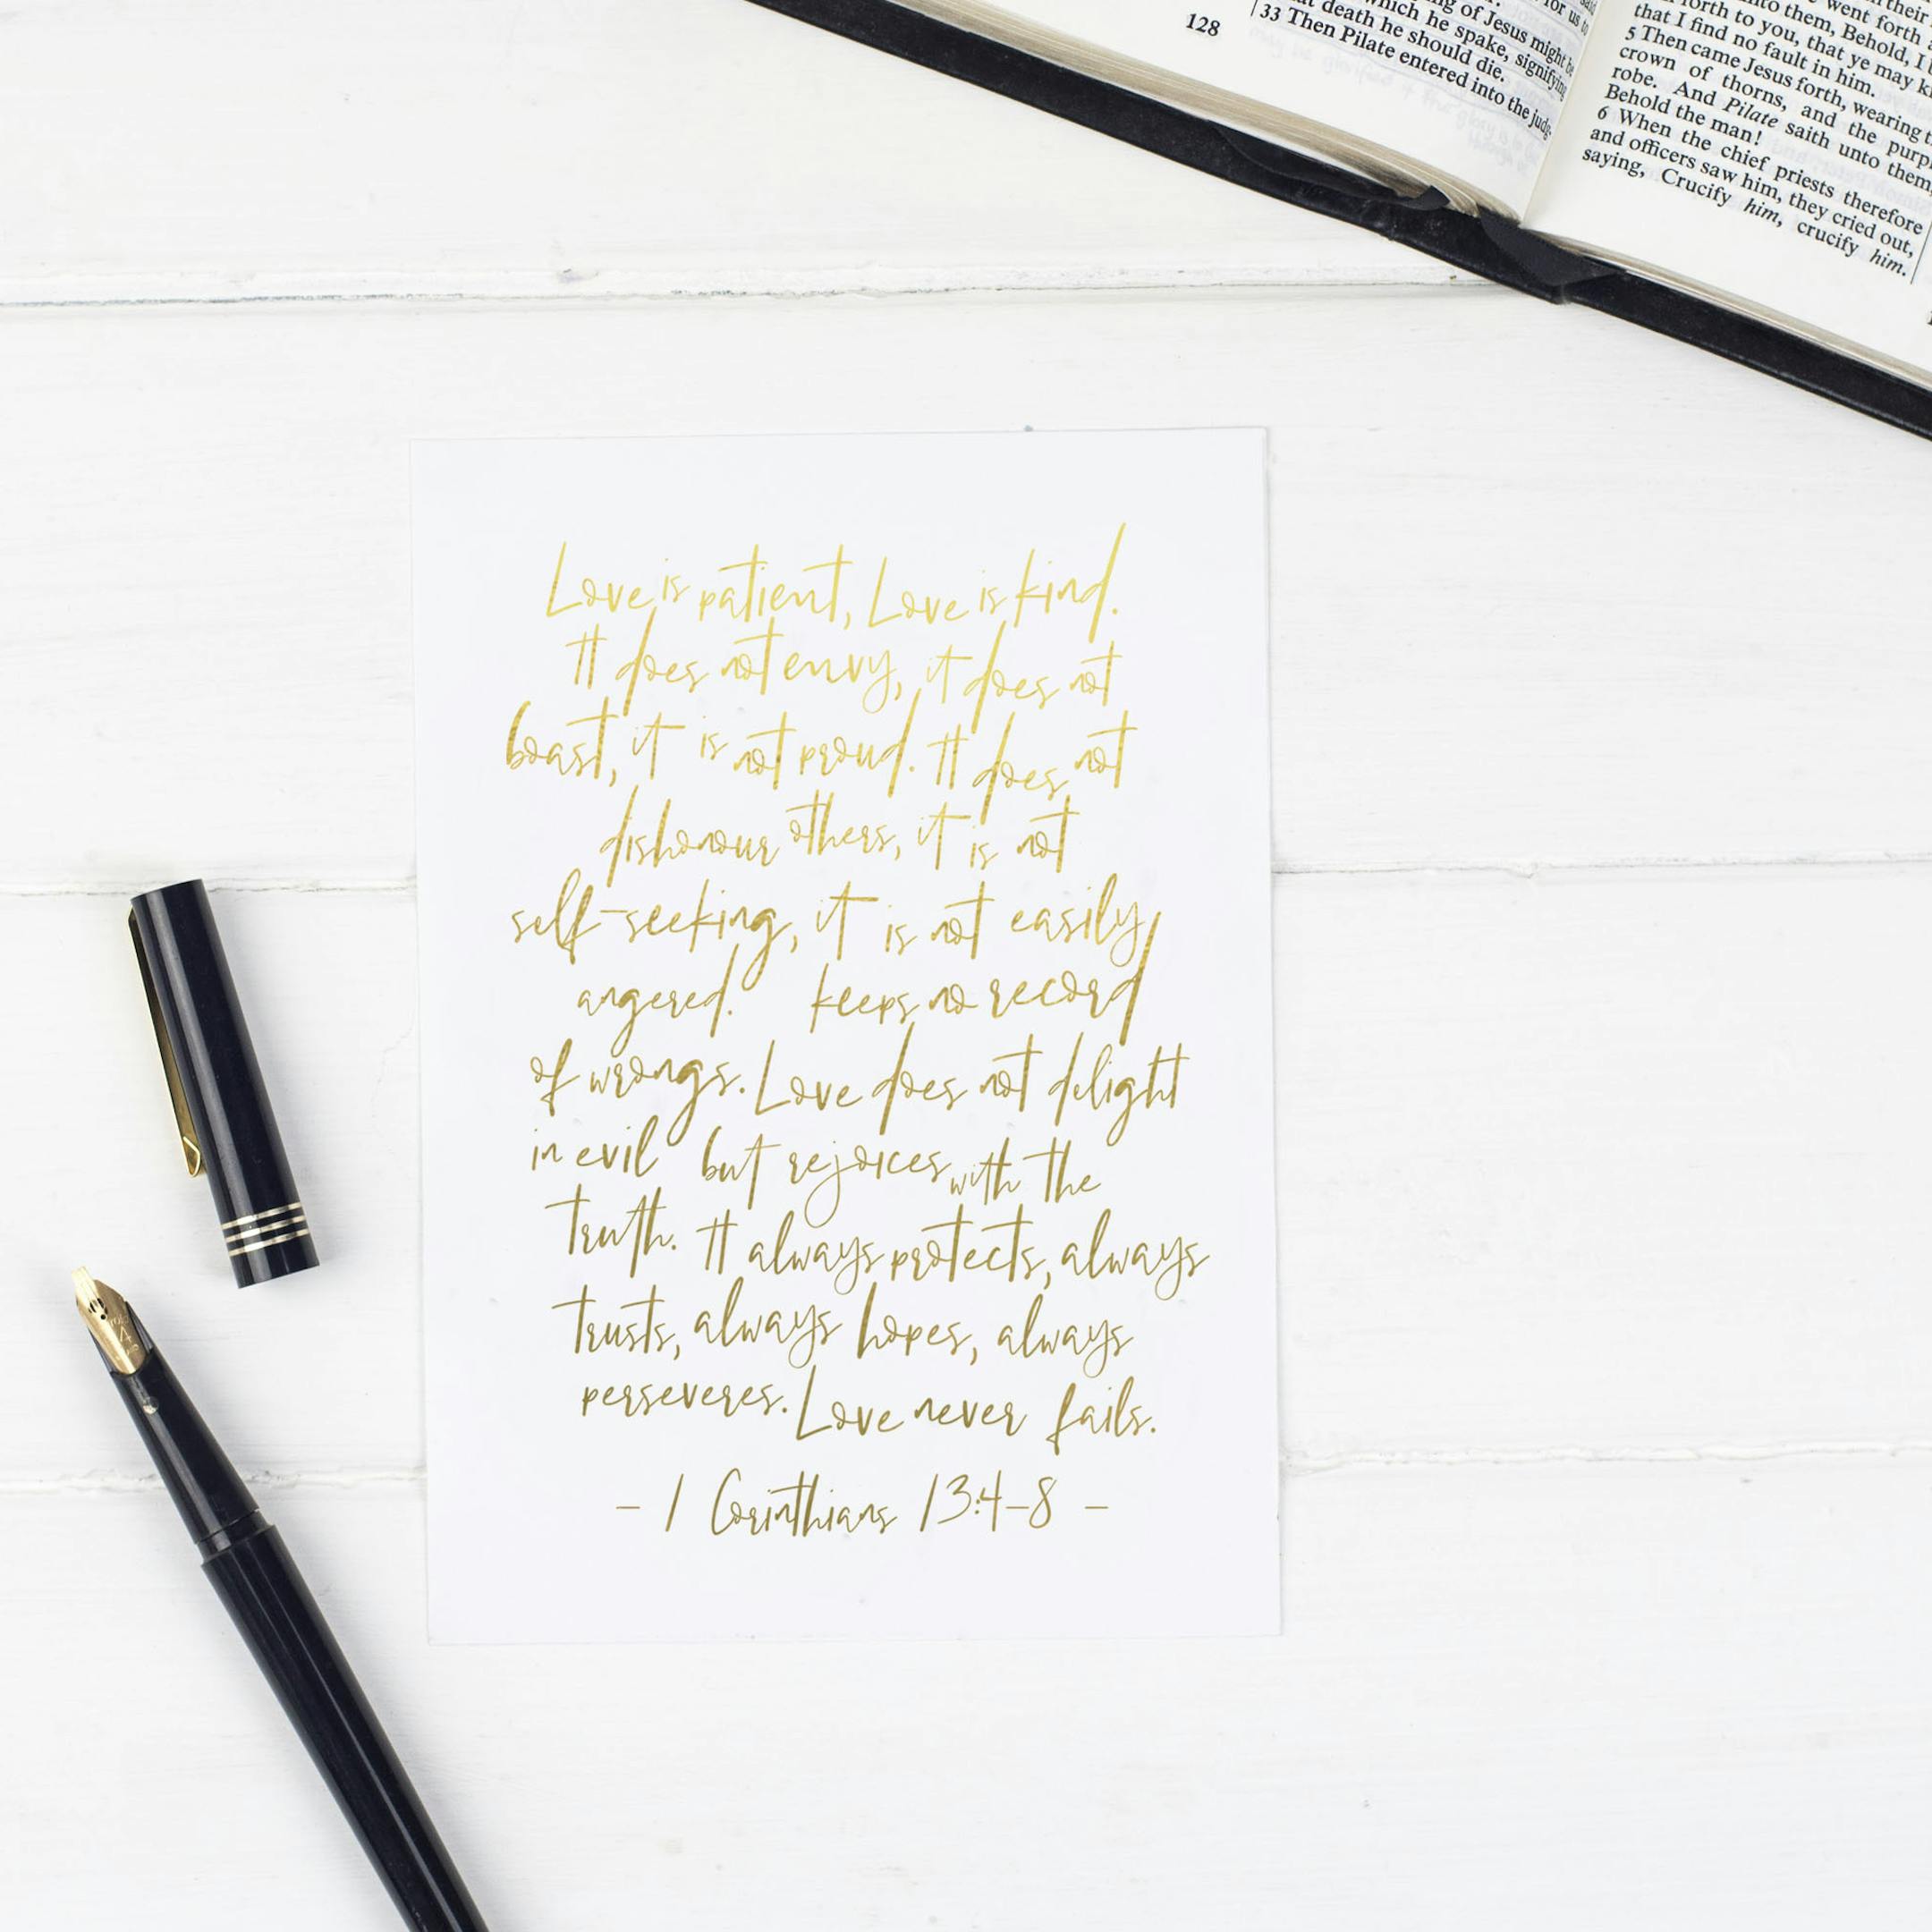 128
ng of Jesus might be
which he spake, signifying
at death he should die.
33 Then Pilate entered into the judg-
went forth
into them, Behold, I
forth to you, that ye may
that I find no fault in him.
5 Then came Jesus forth, wearing
crown of thorns, and the
robe. And Pilate saith unto them,
Behold the man!
6 When the chief priests therefore
and officers saw him, they cried out,
saying, Crucify him, crucify him.
Love is patient, Love is kind.
It does not envy, it does not
boast, it is not proud. It does not
dishonour others, it is not
self-seeking, it is not easily
angered. keeps no record
of wrongs. Love does not delight
in evil but rejoices with the
truth. It always protects, always
trusts, always hopes, always
perseveres. Love never fails.
- 1 Corinthians 13:4-8 -